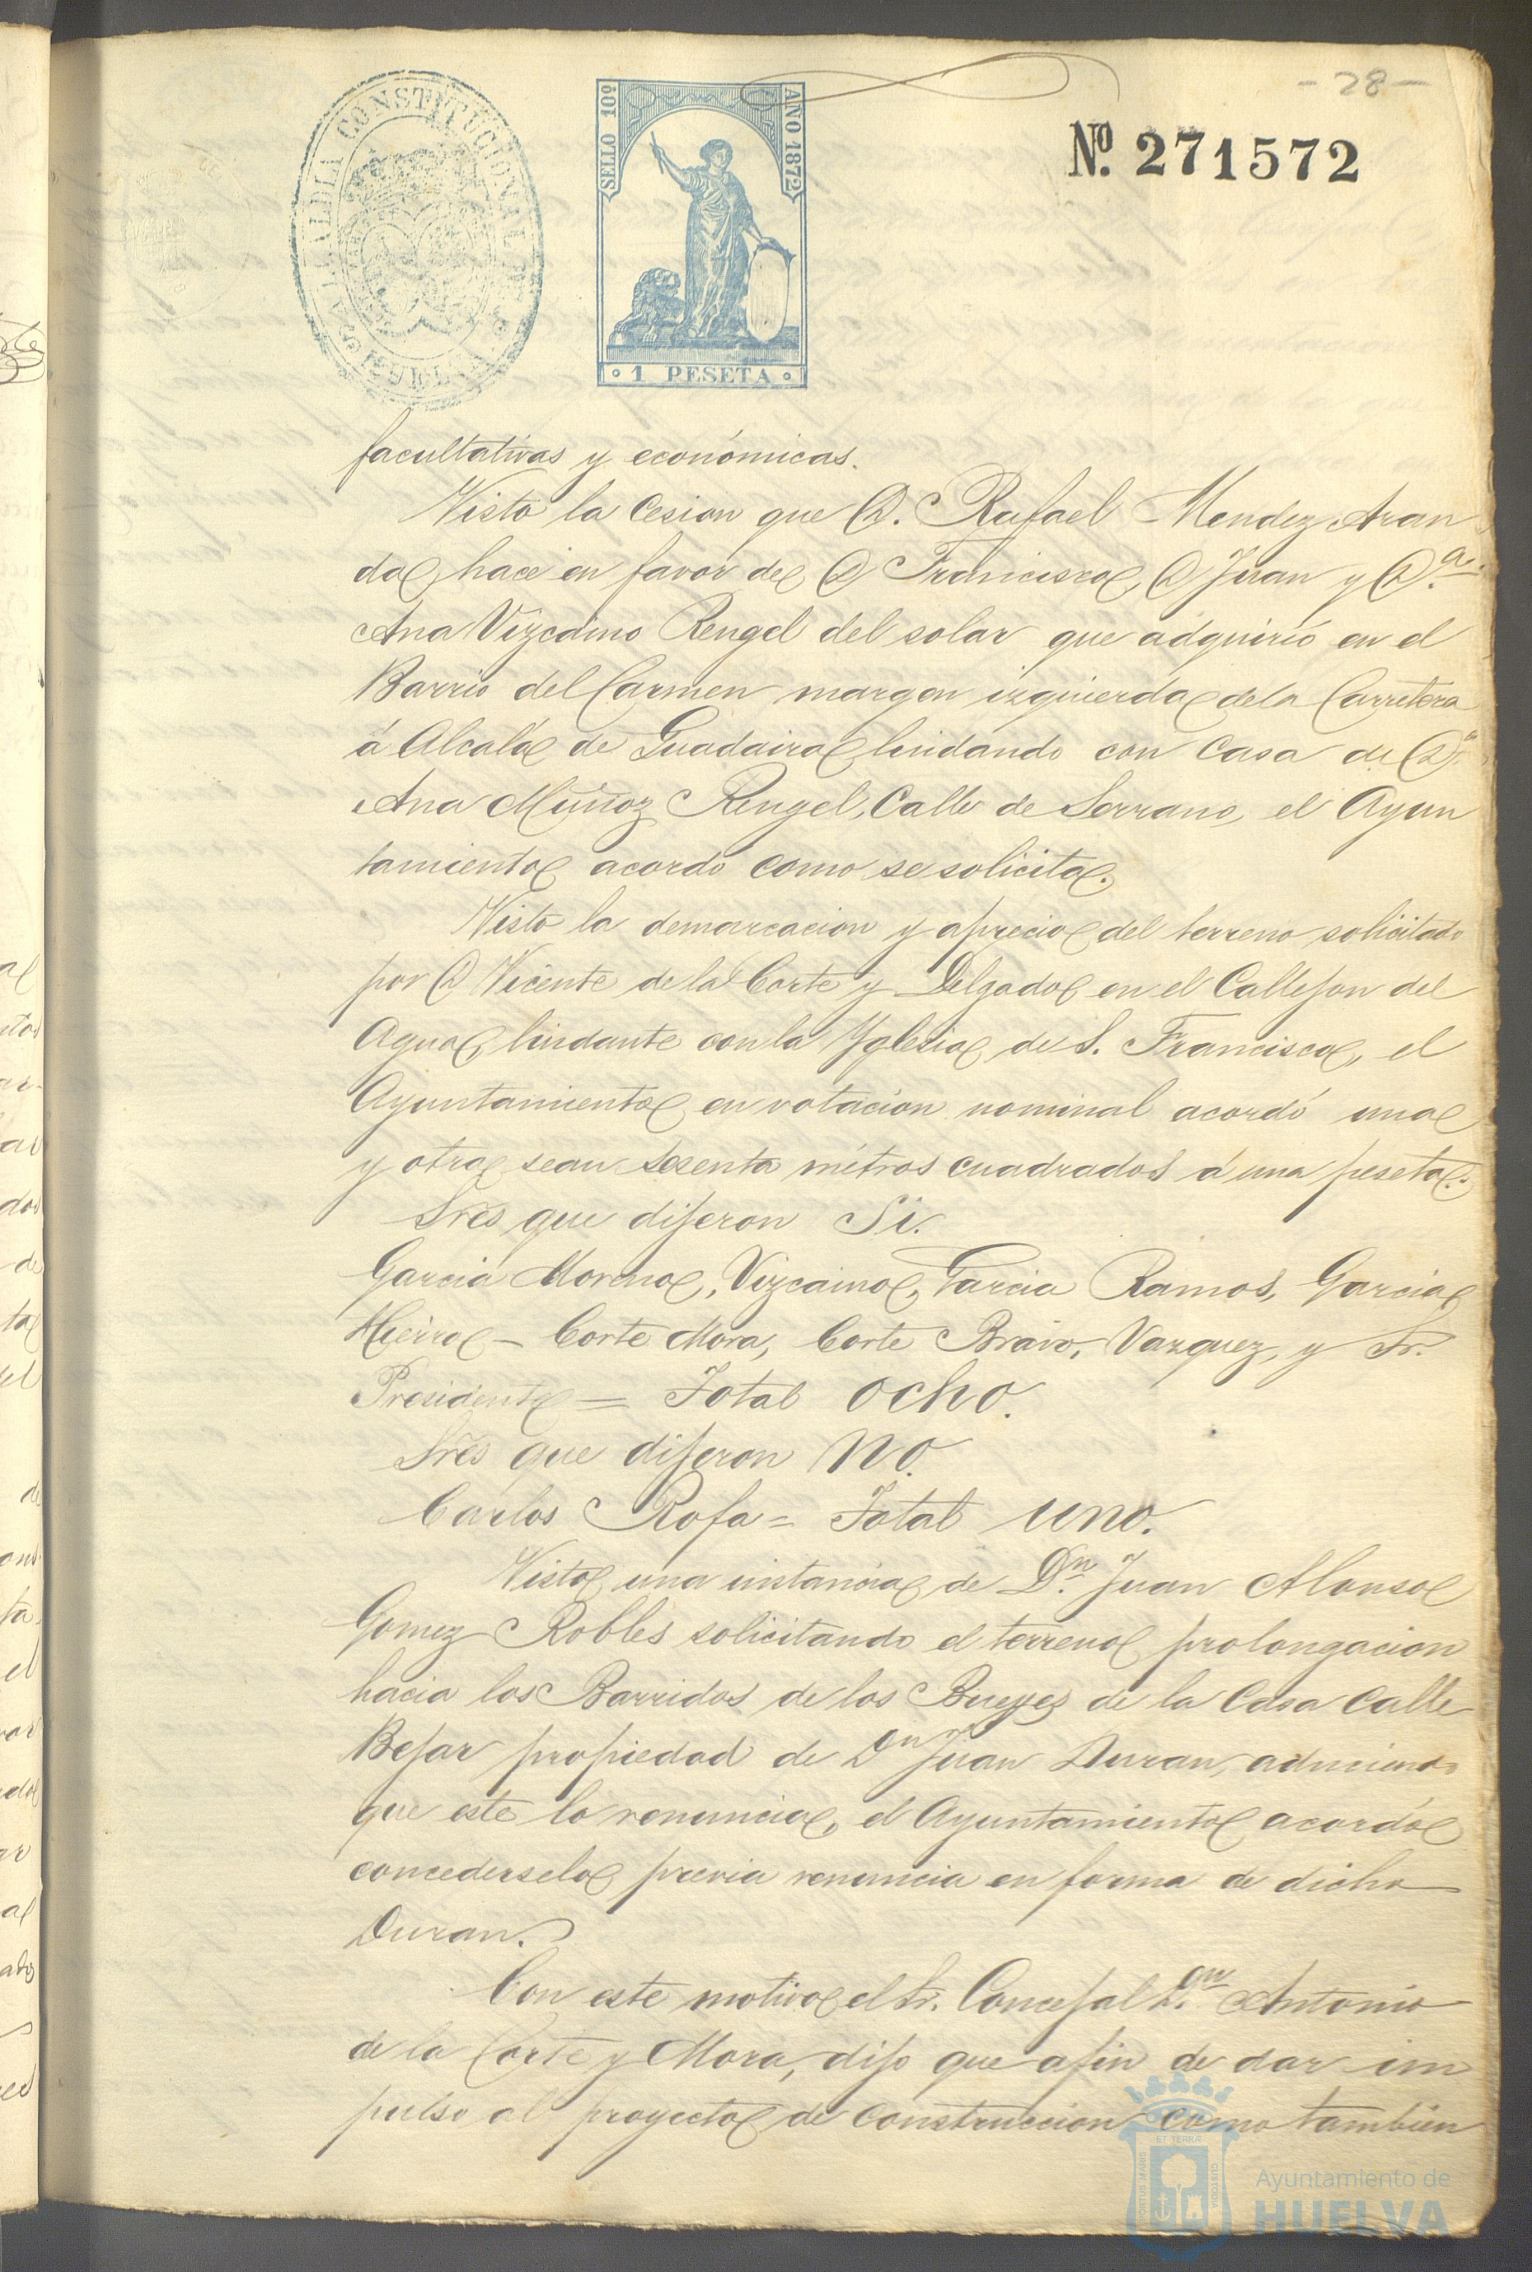 - 28 -
Nº. 271572
ALCALDIA CONSTITUCIONAL DE HUELVA
SELLO 10º
AÑO 1872
1 PESETA
facultativas y económicas.
Visto la Cesion que D. Rafael Mendez Aran
da hace en favor de D Francisco, D Juan y D.ª
Ana Vizcaino Rengel del solar que adquirió en el
Barrio del Carmen margen izquierda de la Carretera
á Alcalá de Guadaira lindando con casa de Dª
Ana Muñoz Rengel, Calle de Serrano, el Ayun
tamiento acordó como se solicita.
Visto la demarcacion y aprecio del terreno solicitado
por D Vicente de la Corte y Delgado en el Callejon del
Agua, lindante con la Yglesia de S. Francisco, el
Ayuntamiento en votacion nominal acordó una
y otra sean sesenta métros cuadrados á una peseta.
Sres que dijeron Si.
Garcia Moreno, Vizcaino, Garcia Ramos, Garcia
Hierro - Corte Mora, Corte Bravo, Vazquez, y Sr.
Presidente = Total ocho.
Sres que dijeron No.
Carlos Rofa = Total uno.
Visto una instancia de D.n Juan Alonso
Gomez Robles solicitando el terreno prolongacion
hacia los Barridos de los Bueyes de la Casa Calle
Bejar propiedad de Dn Juan Duran, aduciendo
que este lo renuncia, el Ayuntamiento acordó
concederselo previa renuncia en forma de dicho
Duran.
Con este motivo el Sr. Concejal D.n Antonio
de la Corte y Mora, dijo que afin de dar im
pulso al proyecto de construccion como tambien
Ayuntamiento de
HUELVA